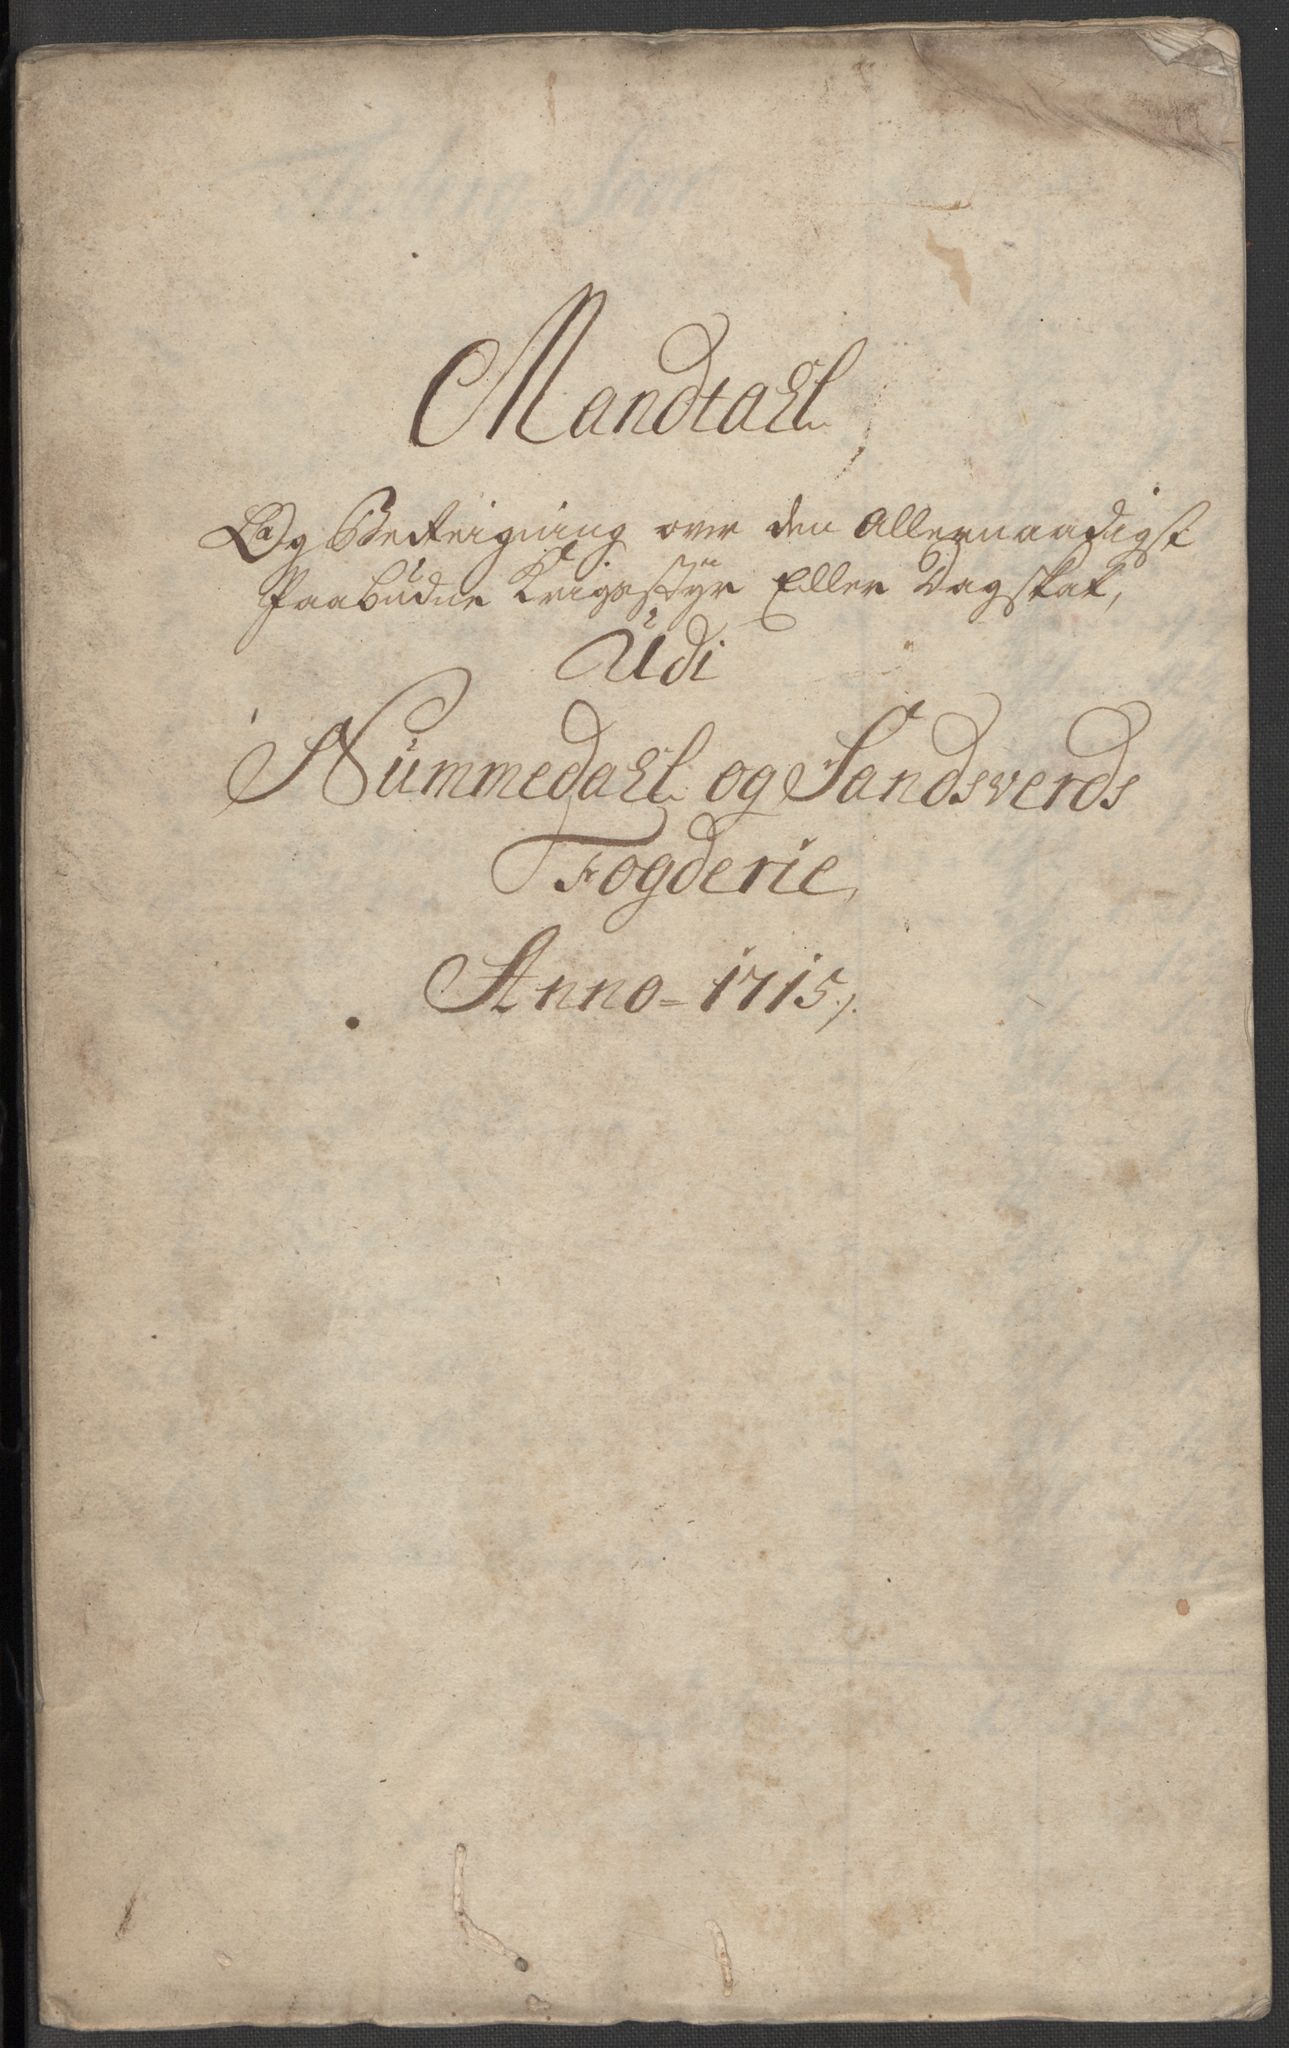 Mandtahl,
Og Bereigning over den Allernaadigst
Paabudne Krigsstÿr Eller Dagskat,
Udi
Nummedahl og Sandsverds
Fogderie,
Anno - 1715 /.